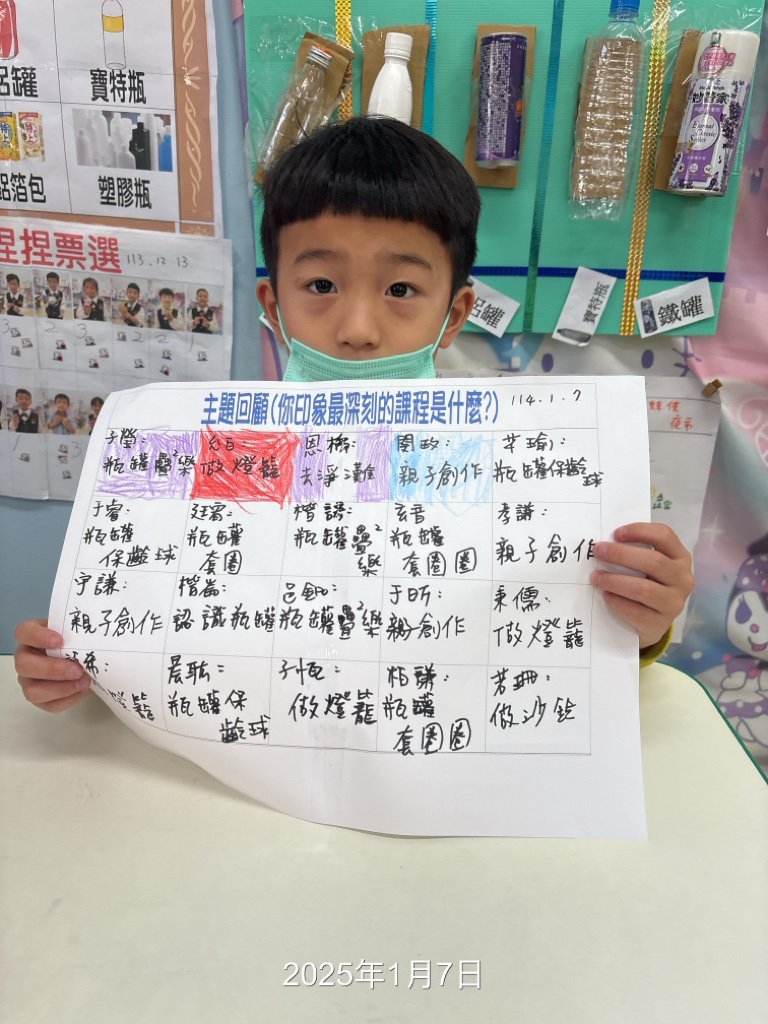 鋁罐
寶特瓶
鋁箔包
塑膠瓶
捏捏票選 113.12.13
妙管家
鋁罐
寶特瓶
鐵罐
主題回顧(你印象最深刻的課程是什麼?) 114.1.7
子瑩:
瓶罐疊²樂
做燈籠
恩
去淨灘
親子創作
瓶罐保齡球
于睿:
瓶罐
保齡球
廷睿:
瓶罐
套圈
楷諺:
瓶罐疊²樂
玄音
瓶罐
套圈圈
孝謙:
親子創作
宇謙:
親子創作
楷崙:
認識瓶罐
瓶罐疊²樂
于昕:
親子創作
秉儒:
做燈籠
希:
燈籠
晨耘:
瓶罐保
齡球
子恆:
做燈籠
柏謙:
瓶罐
套圈圈
若珊:
做沙鈴
2025年1月7日